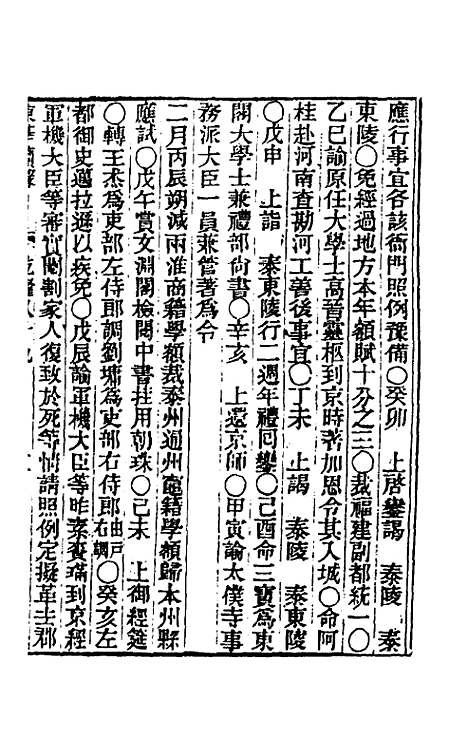 應行事宜各該衙門照例豫備〇癸卯　上啓鑾謁　泰陵　泰
東陵〇免經過地方本年額賦十分之三〇裁福建副都統一〇
乙巳諭原任大學士高晉靈柩到京時著加恩令其入城〇命阿
桂赴河南查勘河工善後事宜〇丁未　上謁　泰陵　泰東陵
〇戊申　上詣　泰東陵行二週年禮回鑾〇己酉命三寶為東
閣大學士兼禮部尚書〇辛亥　上還京師〇甲寅諭太僕寺事
務派大臣一員兼管著為令
二月丙辰朔減兩淮商籍學額裁泰州通州竈籍學額歸本州縣
應試〇戊午賞文淵閣檢閱中書挂用朝珠〇己未　上御經筵
〇轉王杰為吏部左侍郎調劉墉為吏部右侍郎由戶右調〇癸亥左
都御史邁拉遜以疾免〇戊辰諭軍機大臣等昨索賚瑞到京經
軍機大臣等審實閹割家人復致於死等情請照例定擬革去郡
東華續錄　乾隆八十九